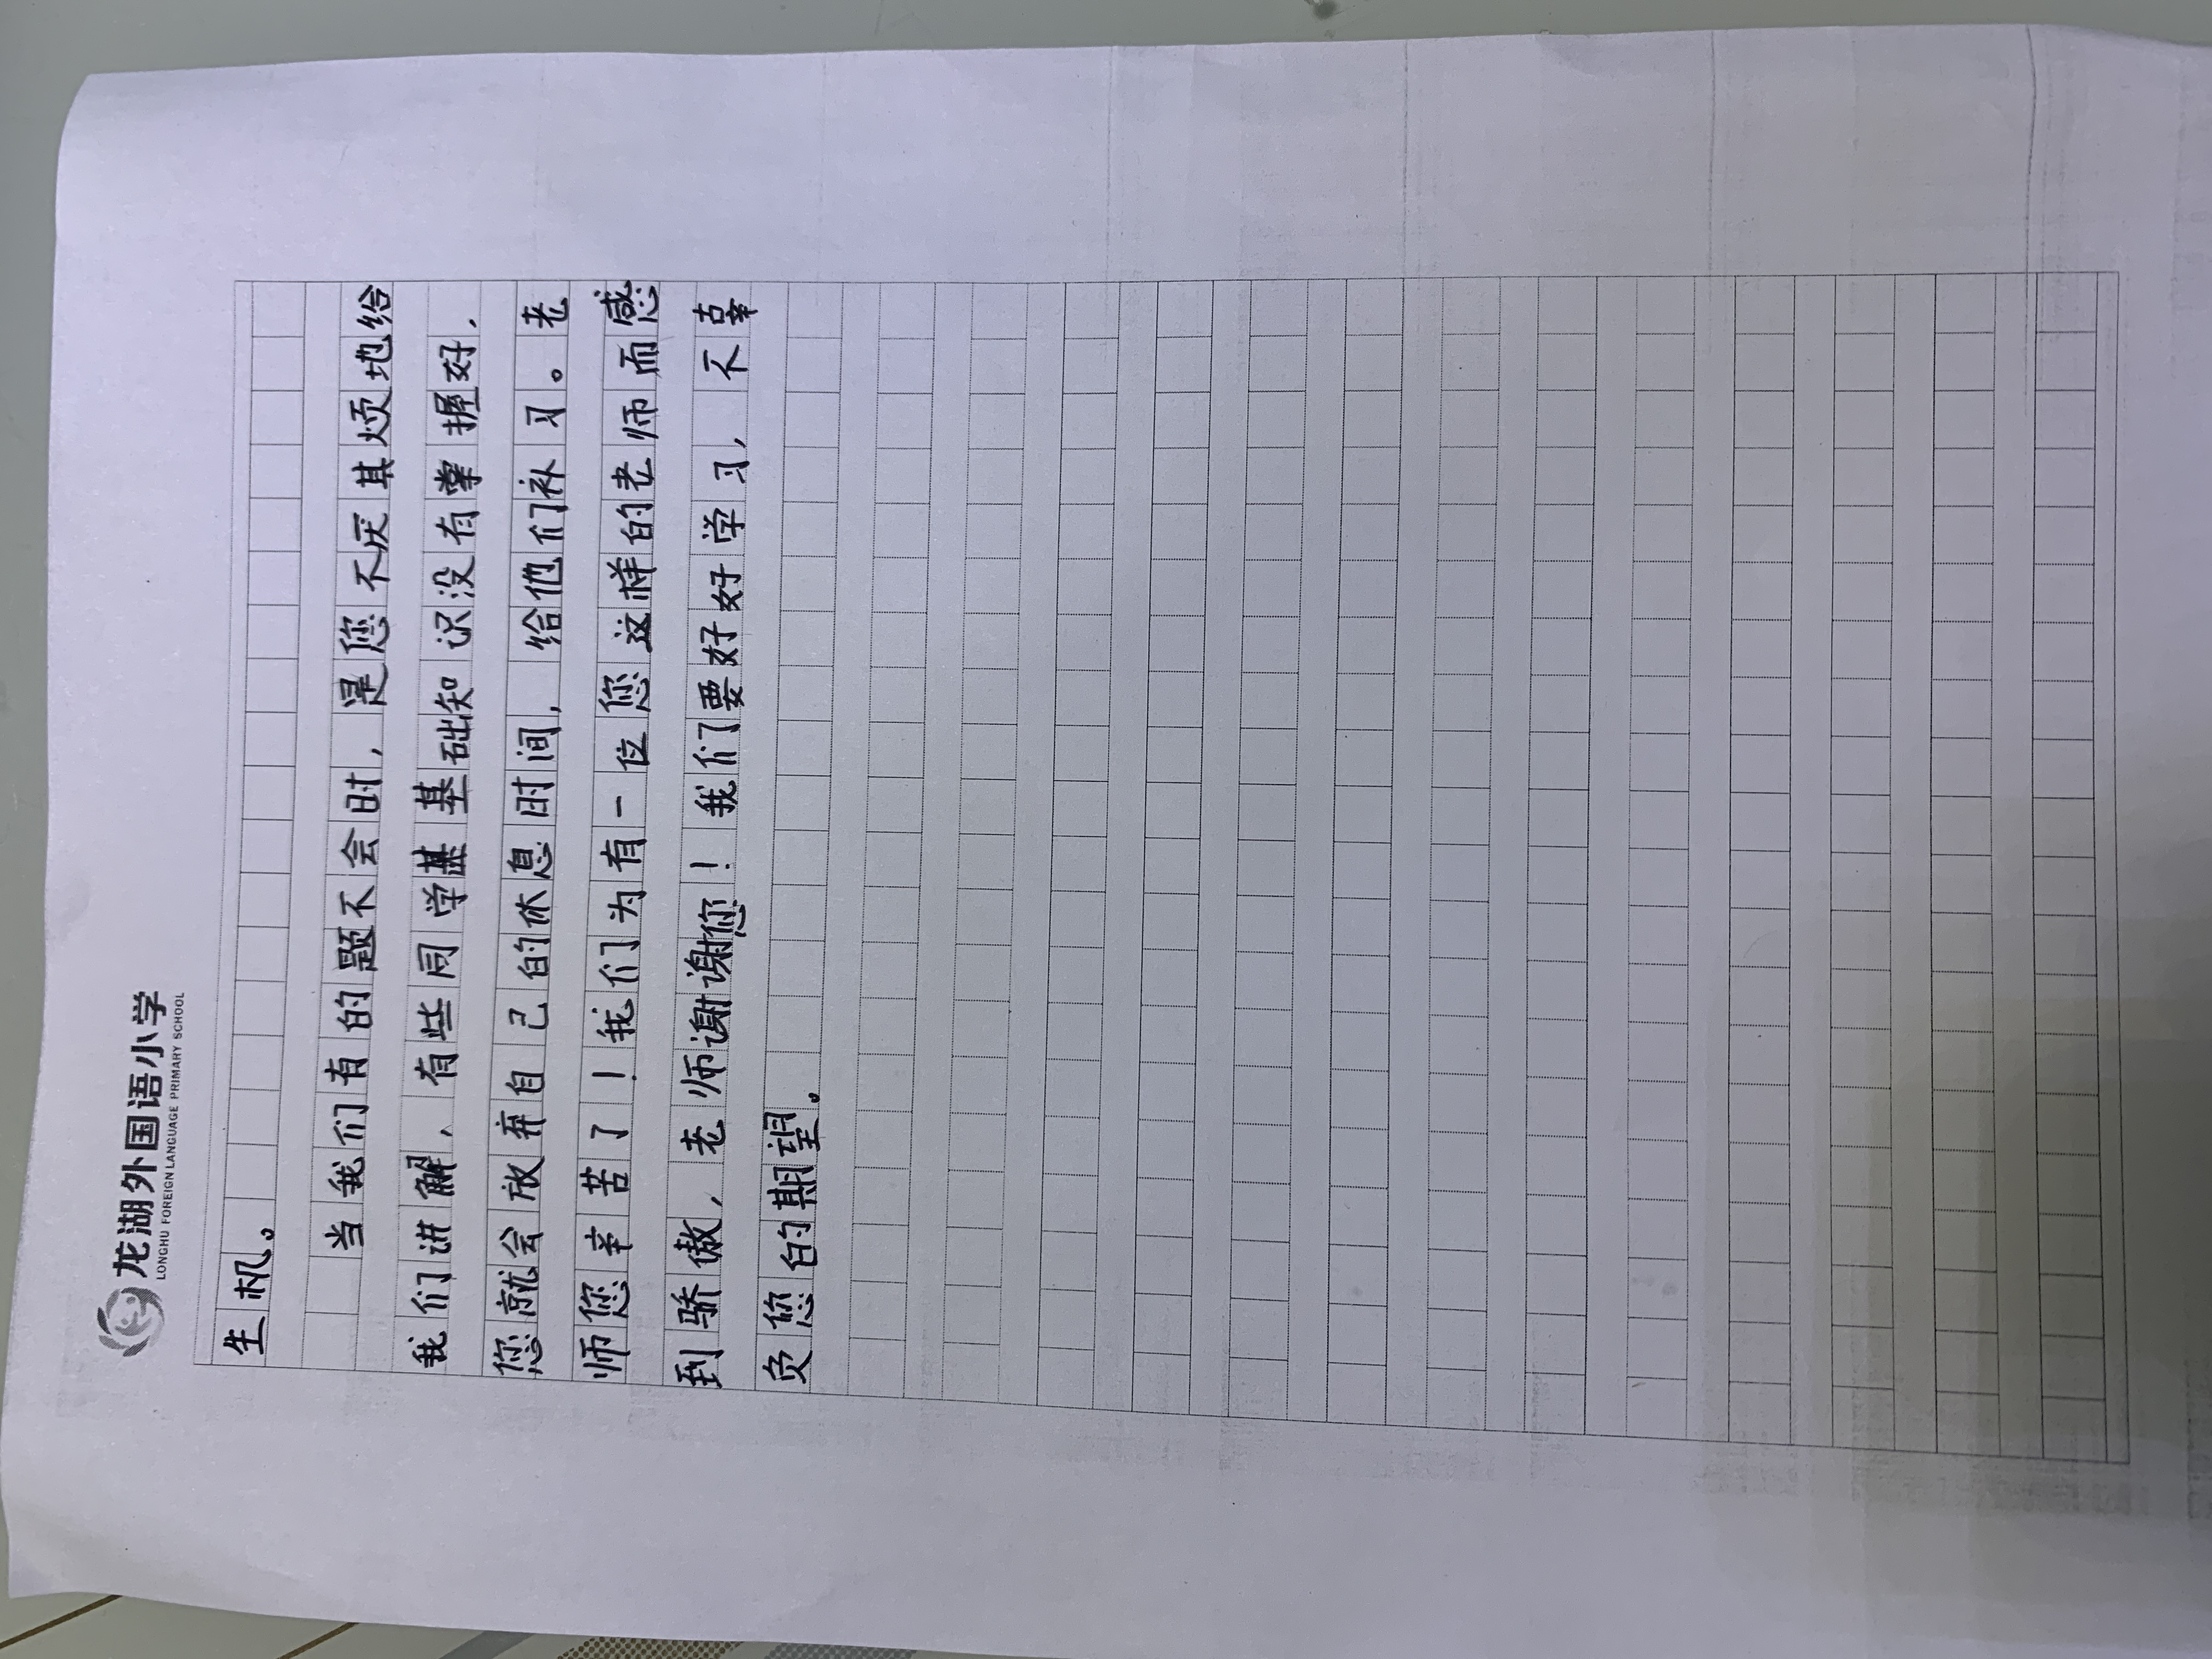 龙湖外国语小学
LONGHU FOREIGN LANGUAGE PRIMARY SCHOOL
生机。
当我们有的题不会时,是您不厌其烦地给
我们讲解,有些同学基础知识没有掌握好,
您就会放弃自己的休息时间,给他们补习。老
师您辛苦了!我们为有一位您这样的老师而感
到骄傲,老师谢谢您!我们要好好学习,不辜
负您的期望。